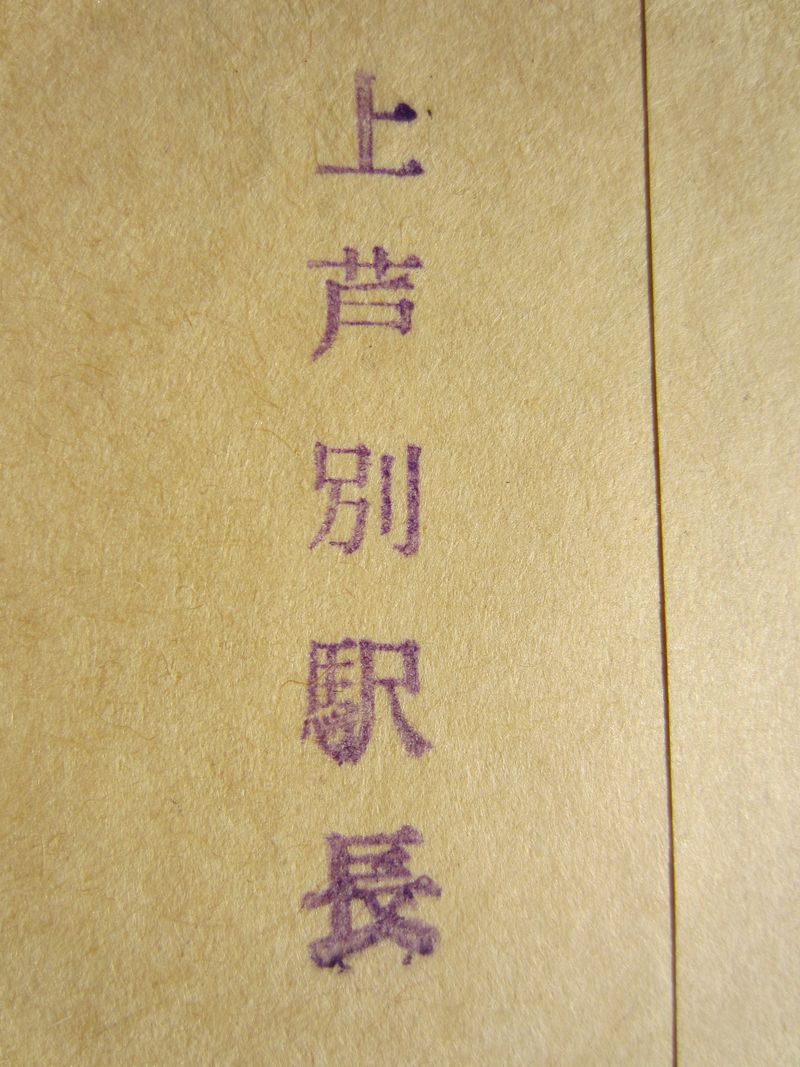 上芦別駅長